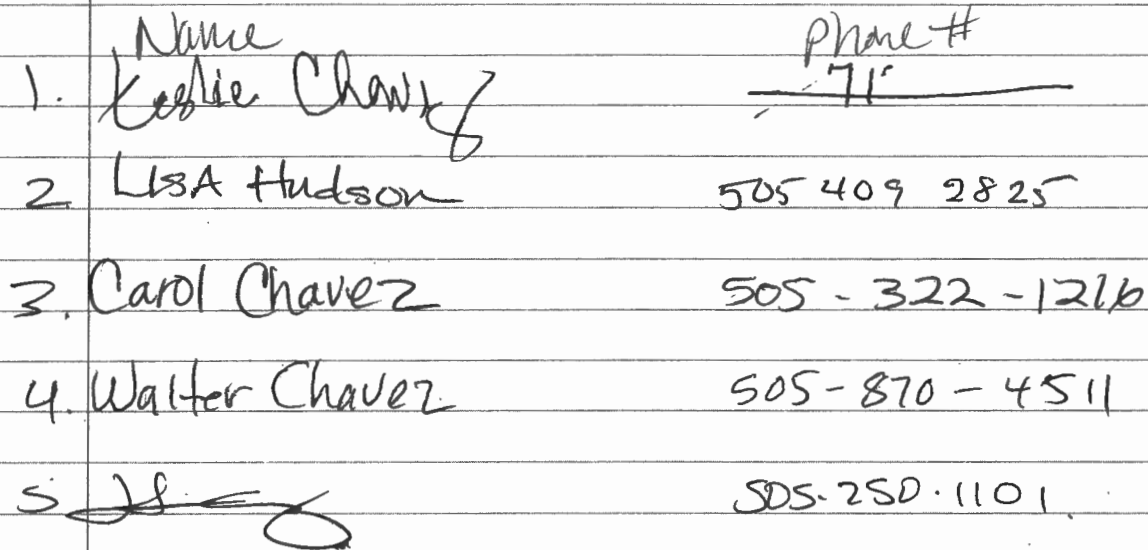 Name Phone #
1. Leslie Chavez
2. LisA Hudson 505 409 2825
3. Carol Chavez 505-322-1216
4. Walter Chavez 505-870-4511
5 505.250.1101.